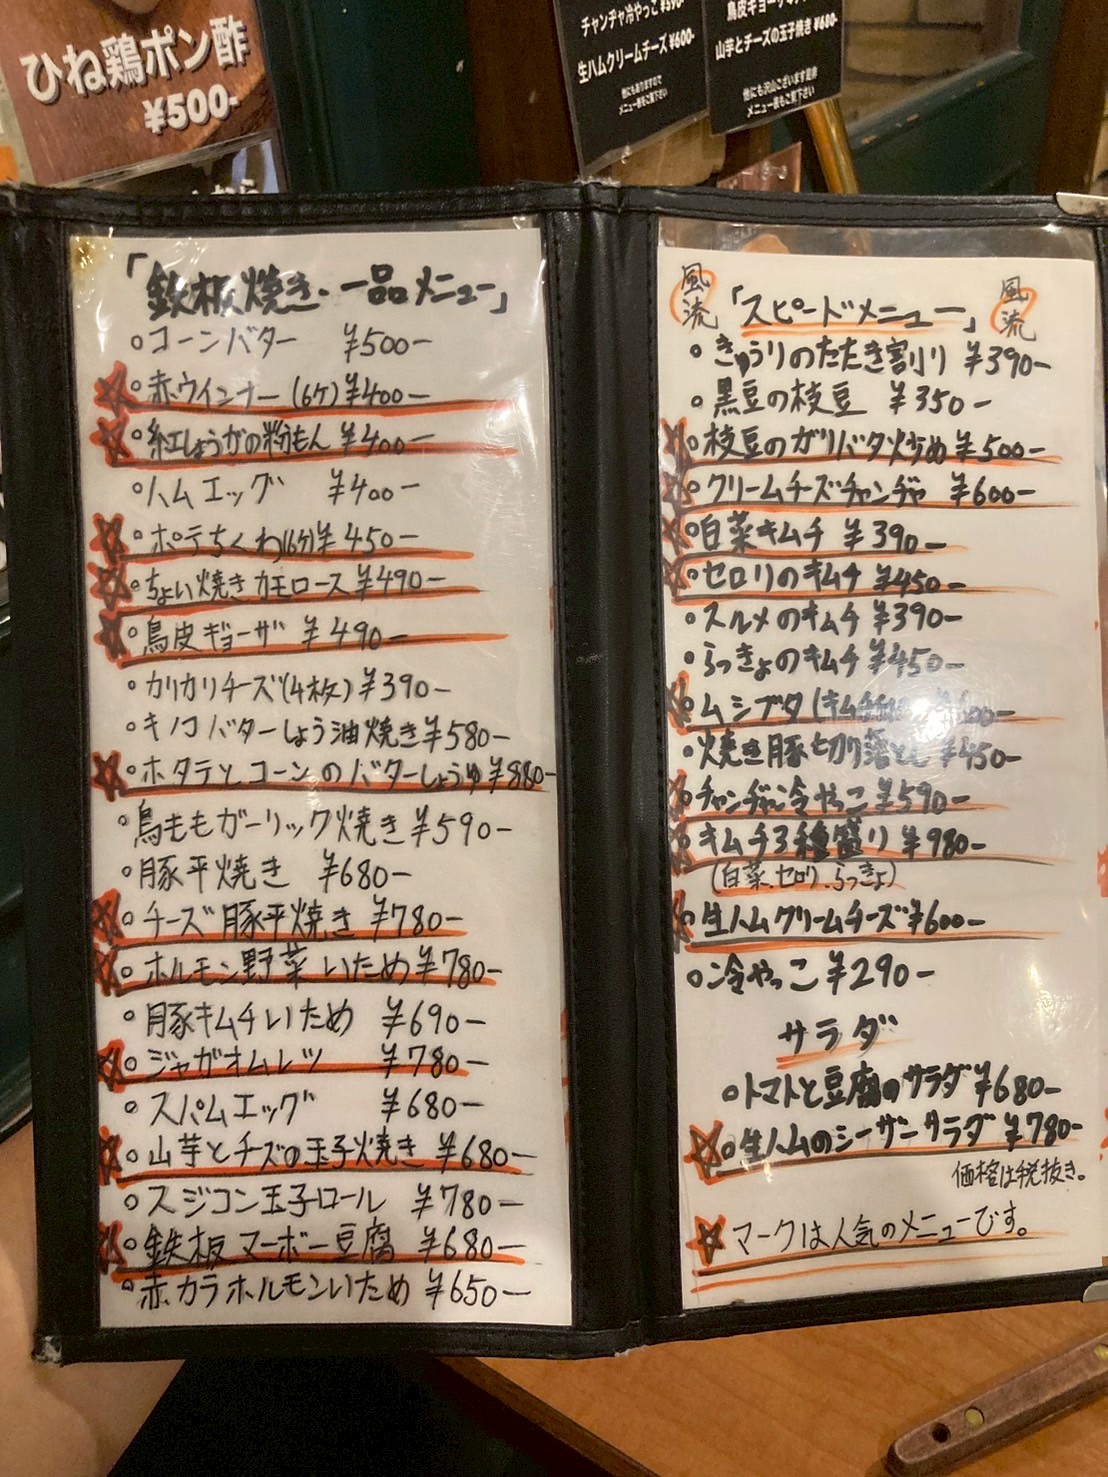 ひね鶏ポン酢
¥500-
チャンヂャ冷やっこ ¥590-
生ハムクリームチーズ ¥600-
他にも有りますので
メニュー表をご覧下さい
鳥皮ギョーザ
山芋とチーズの玉子焼き ¥680-
他にも沢山ございます是非
メニュー表もご覧下さい
「鉄板焼き・一品メニュー」
○コーンバター ¥500-
☆○赤ウインナー(6ケ) ¥400-
☆○紅しょうがの粉もん ¥400-
○ハムエッグ ¥400-
☆○ポテちくわ(6ケ) ¥450-
☆○ちょい焼きカモロース ¥490-
☆○鳥皮ギョーザ ¥490-
○カリカリチーズ(4枚) ¥390-
○キノコバターしょう油焼き ¥580-
☆○ホタテとコーンのバターしょうゆ ¥880-
○鳥ももガーリック焼き ¥590-
○豚平焼き ¥680-
☆○チーズ豚平焼き ¥780-
☆○ホルモン野菜いため ¥780-
○豚キムチいため ¥690-
☆○ジャガオムレツ ¥780-
○スパムエッグ ¥680-
☆○山芋とチーズの玉子焼き ¥680-
○スジコン玉子ロール ¥780-
☆○鉄板マーボー豆腐 ¥680-
○赤カラホルモンいため ¥650-
風流「スピードメニュー」風流
○きゅうりのたたき割り ¥390-
○黒豆の枝豆 ¥350-
☆○枝豆のガリバタ炒め ¥500-
☆○クリームチーズチャンヂャ ¥600-
☆○白菜キムチ ¥390-
☆○セロリのキムチ ¥450-
○スルメのキムチ ¥390-
○らっきょのキムチ ¥450-
☆○ムシブタ(キムチ
○焼き豚切り落とし ¥450-
☆○チャンヂャ冷やっこ ¥590-
☆○キムチ3種盛り ¥980-
(白菜、セロリ、らっきょ)
☆○生ハムクリームチーズ ¥600-
○冷やっこ ¥290-
サラダ
○トマトと豆腐のサラダ ¥680-
☆○生ハムのシーザーサラダ ¥780-
価格は税抜き。
☆マークは人気のメニューです。